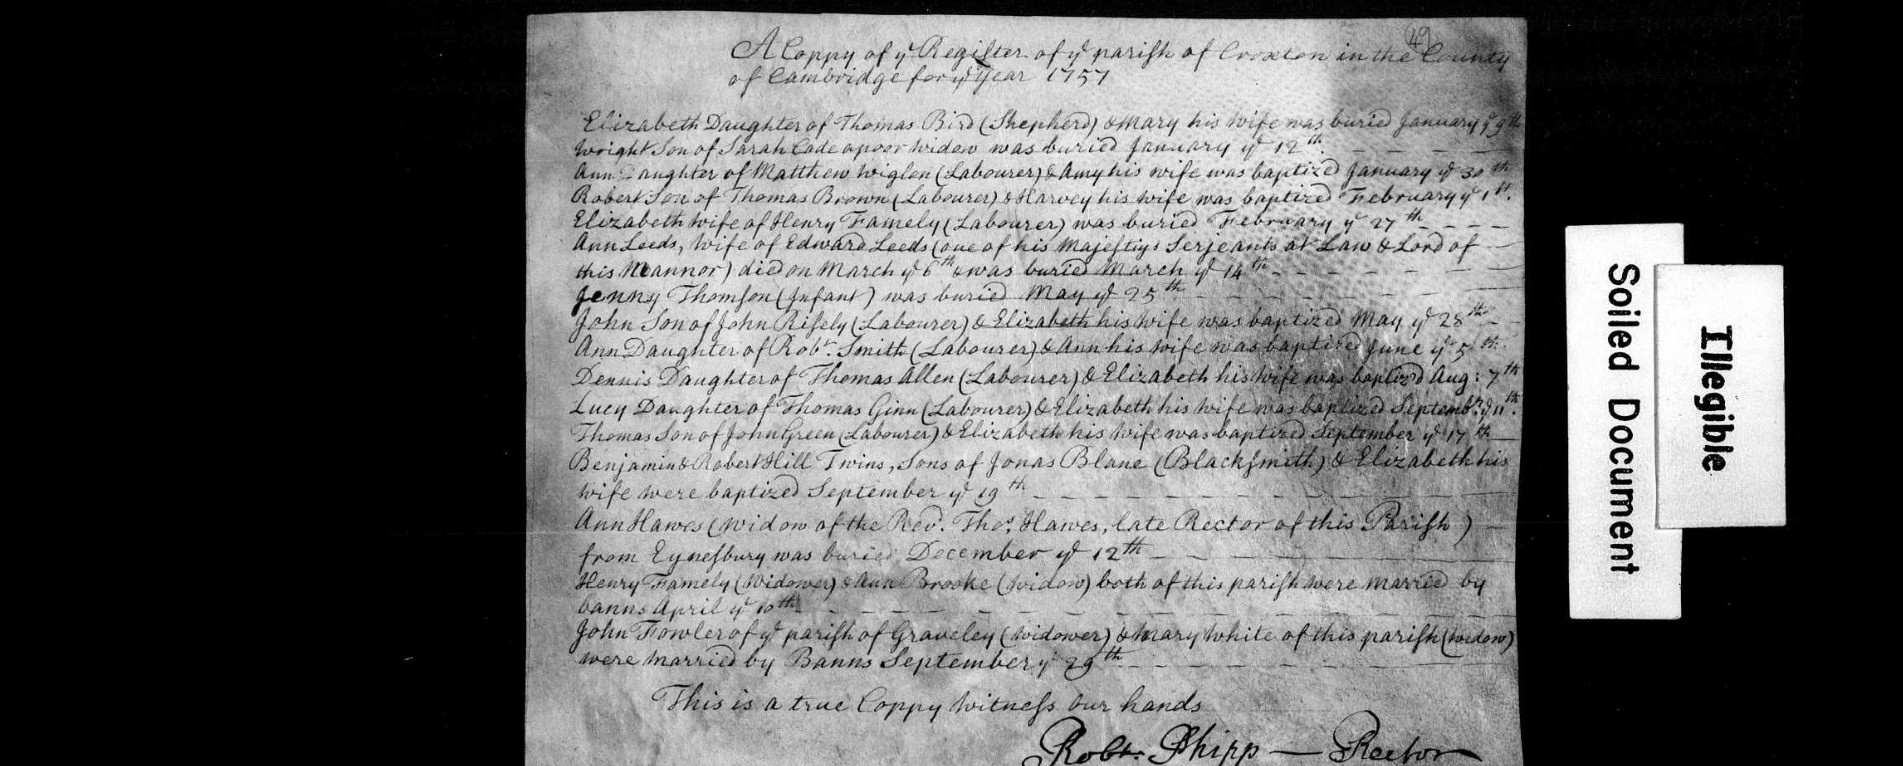 49
A Coppy of yᵉ Register of yᵉ parish of Croxton in the County
of Cambridge for yᵉ Year 1757
Elizabeth Daughter of Thomas Bird (Shepherd) & Mary his wife was buried January yᵉ 9th
Wright Son of Sarah Cade a poor widow was buried January yᵉ 12th
Ann Daughter of Matthew Wiglen (Labourer) & Amy his wife was baptized January yᵉ 30th
Robert Son of Thomas Brown (Labourer) & Harvey his wife was baptized February yᵉ 1st.
Elizabeth wife of Henry Famely (Labourer) was buried February yᵉ 27th
Ann Leeds, Wife of Edward Leeds (one of his Majestys Serjeants at Law & Lord of
this Mannor) died on March yᵉ 6th & was buried March yᵉ 14th
Jenny Thomson (Infant) was buried May yᵉ 25th
John Son of John Risely (Labourer) & Elizabeth his wife was baptized May yᵉ 28th
Ann Daughter of Robt. Smith (Labourer) & Ann his wife was baptized June yᵉ 5th.
Dennis Daughter of Thomas Allen (Labourer) & Elizabeth his wife was baptized Aug: 7th
Lucy Daughter of Thomas Ginn (Labourer) & Elizabeth his wife was baptized Septembr yᵉ 11th.
Thomas Son of John Green (Labourer) & Elizabeth his wife was baptized September yᵉ 17th
Benjamin & Robert Hill Twins, Sons of Jonas Blane (Blacksmith) & Elizabeth his
wife were baptized September yᵉ 19th
Ann Hawes (Widow of the Revd. Thos. Hawes, late Rector of this Parish)
from Eynesbury was buried December yᵉ 12th
Henry Famely (Widower) & Ann Brooke (Widow) both of this parish were married by
banns April yᵉ 10th
John Fowler of yᵉ parish of Graveley (widower) & Mary White of this parish (widow)
were married by Banns September yᵉ 29th
This is a true Coppy Witness our hands
Robt. Phipp — Rector
Soiled Document
Illegible